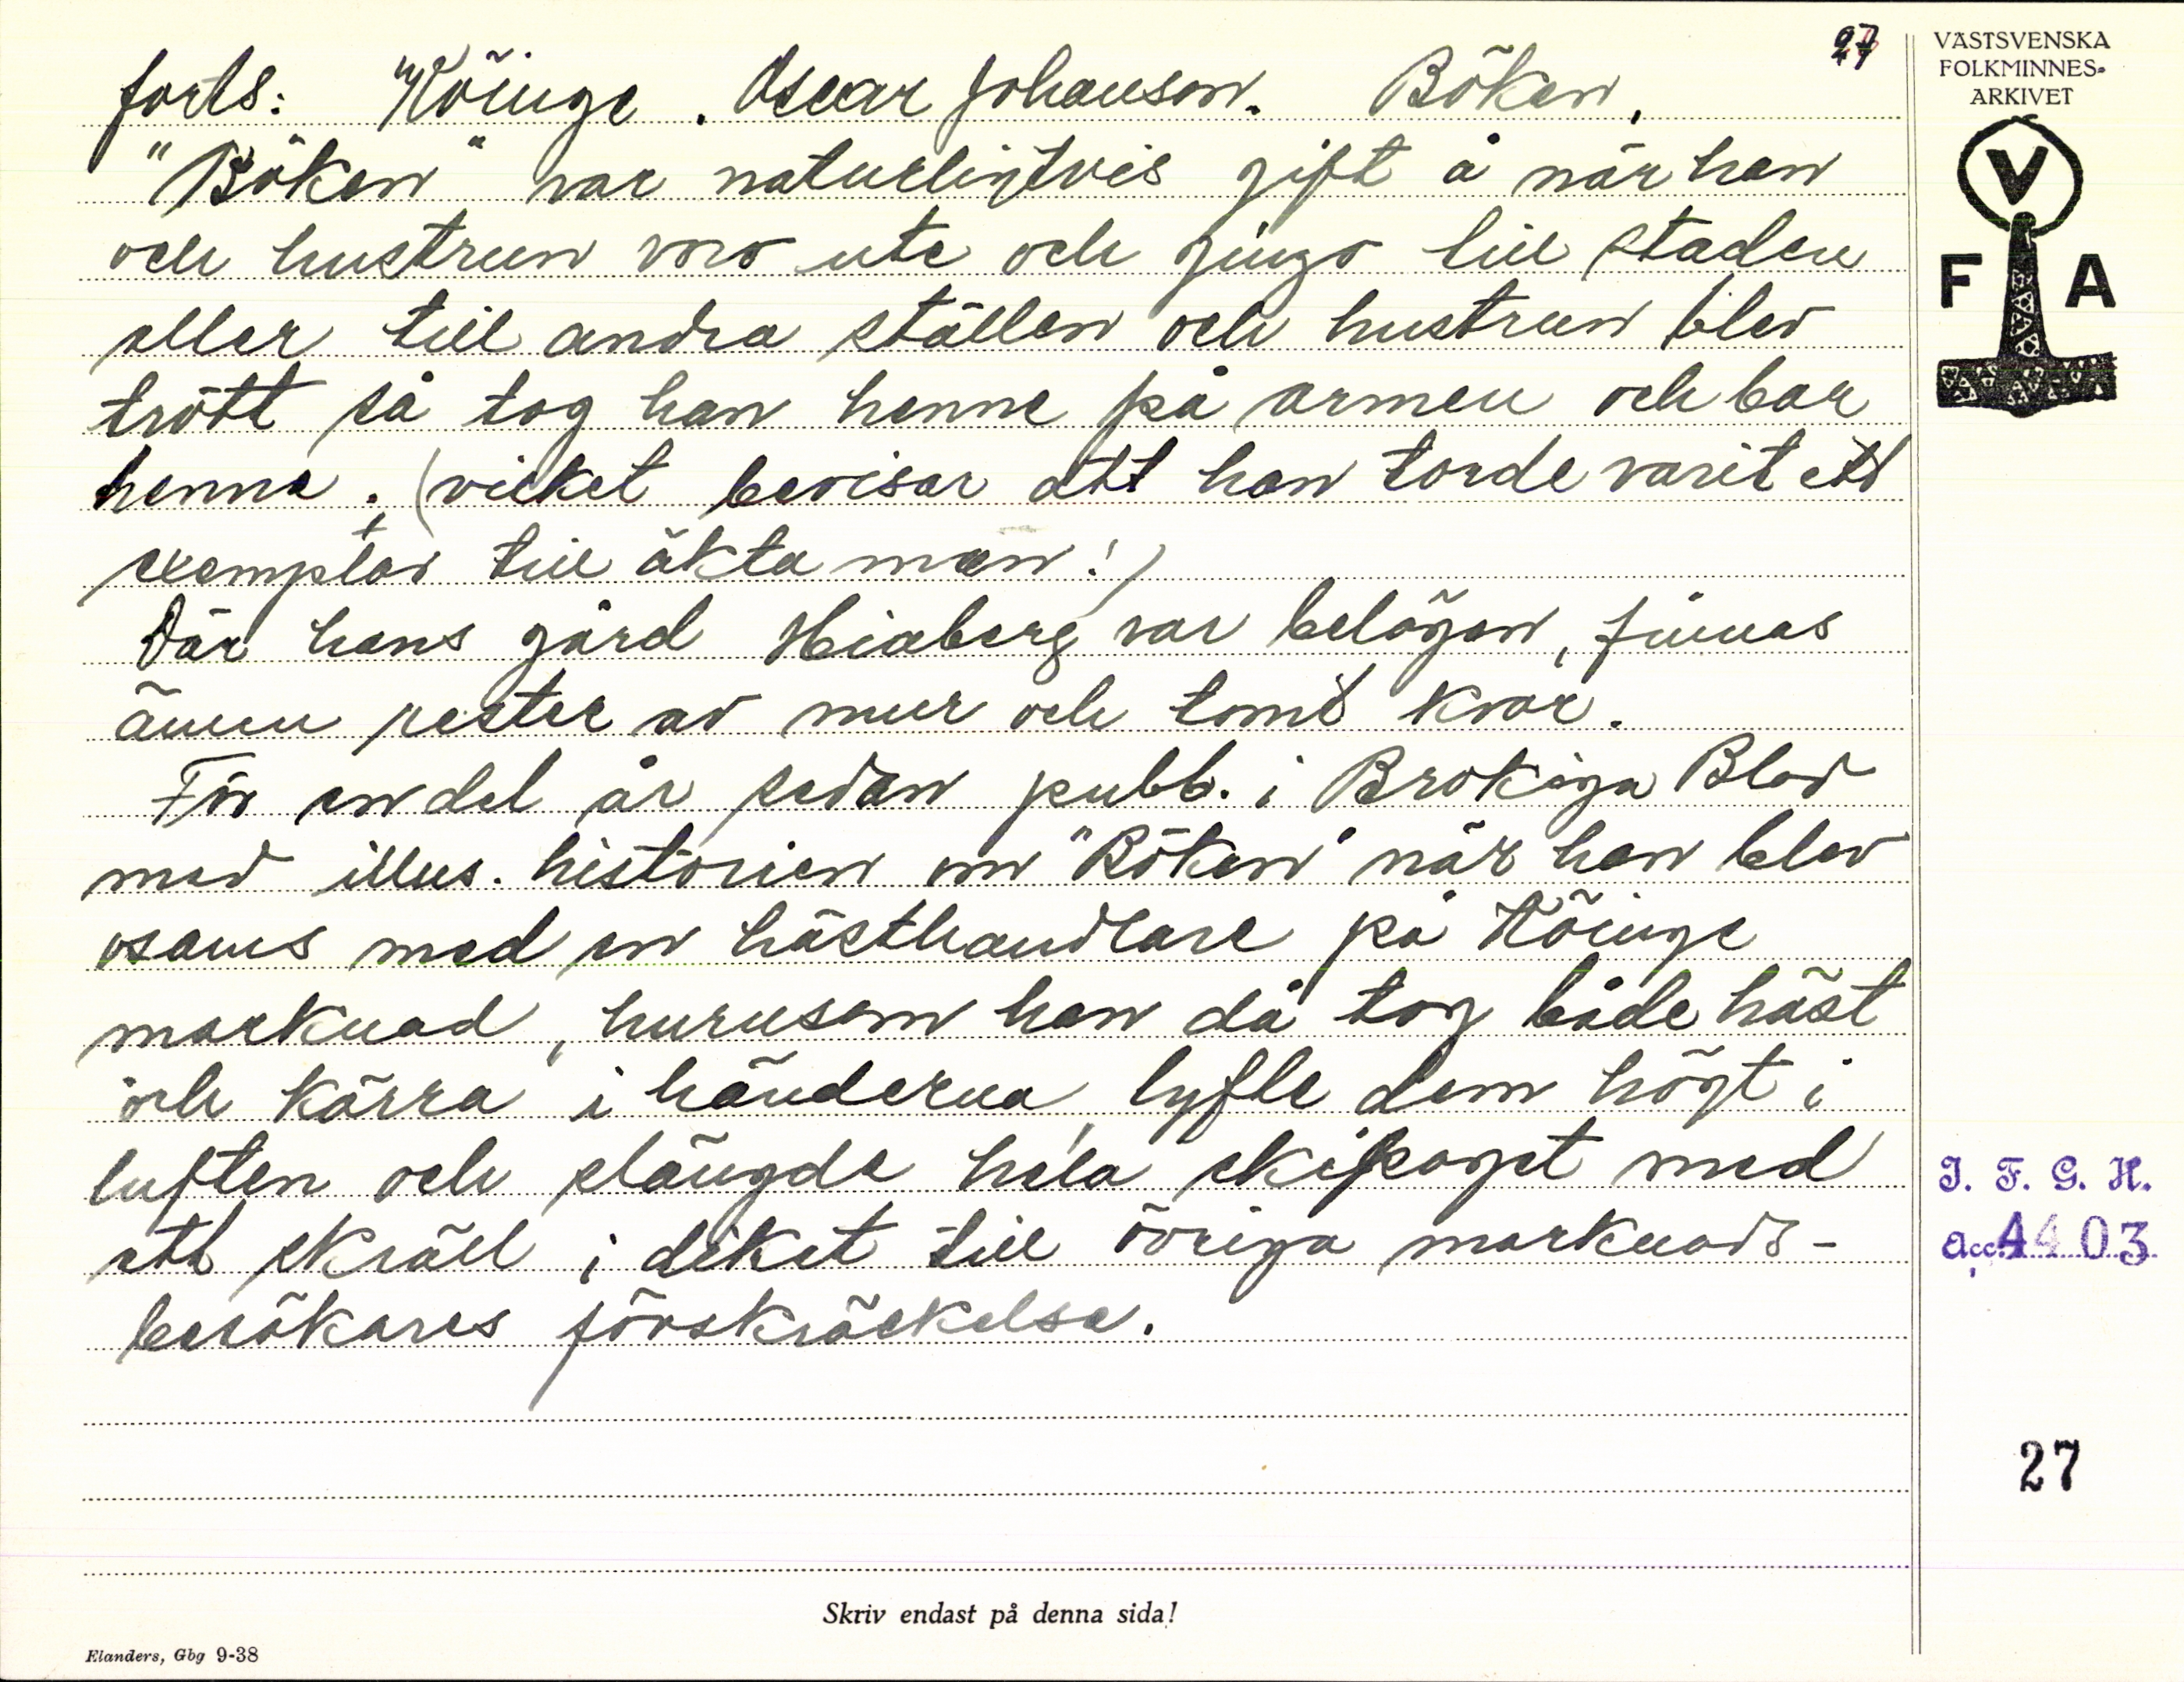 27
forts: Köinge. Oscar Johanson. Böken.
"Böken" var naturligtvis gift å när han
och hustrun voro ute och gingo till staden
eller till andra ställen och hustrun blev
trött så tog han henne på armen och bar
henne. (vicket bevisar att han torde varit ett
exemplar till äkta man!)
Där hans gård Hiaberg var belägen, finnas
ännu rester av mur och tomt kvar.
För en del år sedan publ. i Brokiga Blad
med illus. historien om "Böken" när han blev
osams med en hästhandlare på Köinge
marknad, hurusom han då tog både häst
och kärra i händerna, lyfte dem högt i
luften och slängde hela ekipaget med
ett skräll i diket till övriga marknads-
besökares förskräckelse.
Skriv endast på denna sida!
Elanders, Gbg 9-38
VÄSTSVENSKA
FOLKMINNES-
ARKIVET
V
F A
I. F. G. H.
acc. 4403
27